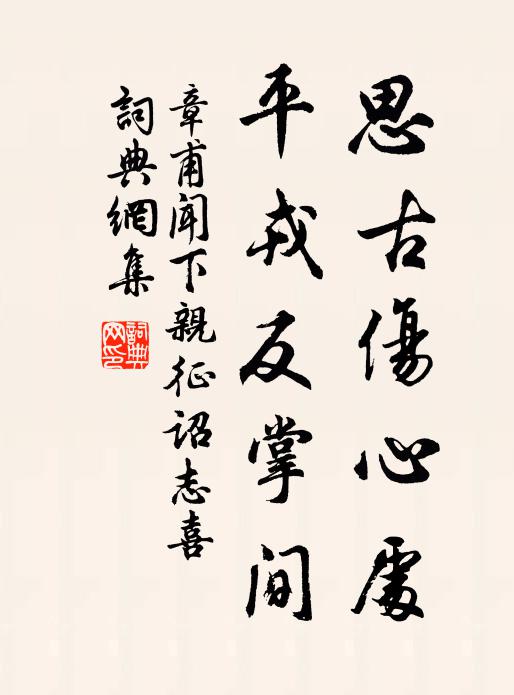 思古傷心處
平戎反掌間
章甫聞下親征詔志喜
詞典網集
詞典網印